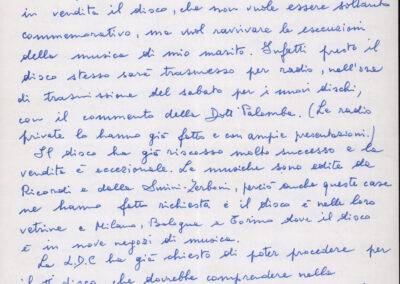 in vendita il disco, che non vuole essere soltanto
commemorativo, ma vuol ravvivare la esecuzioni
della musica di mio marito. Infatti presto il
disco stesso sarà trasmesso per radio, nell'ora
di trasmissione del sabato per i nuovi dischi,
con il commento della Dott. Palomba. (Le radio
private lo hanno già fatto e con ampie presentazioni.)
Il disco ha già riscosso molto successo e la
vendita è eccezionale. Le musiche sono edite da
Ricordi e della Suvini-Zerboni, perciò anche queste case
ne hanno fatto richiesta e il disco è nelle loro
vetrine e Milano, Bologna e Torino dove il disco
è in nove negozi di musica.
La L.D.C ha già chiesto di poter procedere per
il disco che dovrebbe comprendere nella